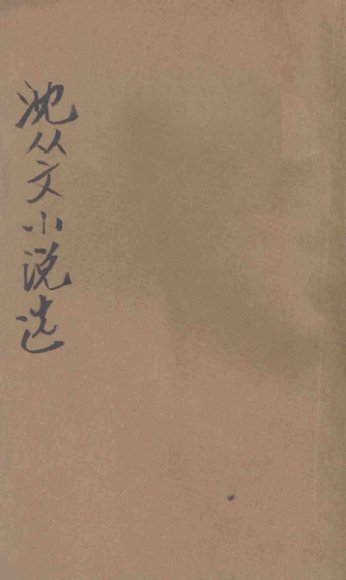 沈从文小说选